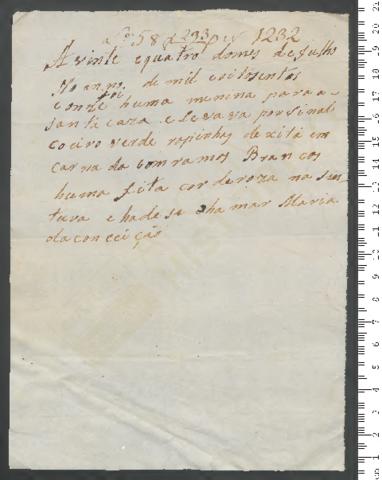 nº 58 f 233 P 1232
A vinte equatro domes de Julho
No anno de mil eoitosentos
eonze foi huma menina para a
santa caza e levava por sinal
coeiro verde ropinhas de xita en
carnada com ramos Brancos
huma fita cor de roza na sin
tura e hade se chamar Maria
da conceição